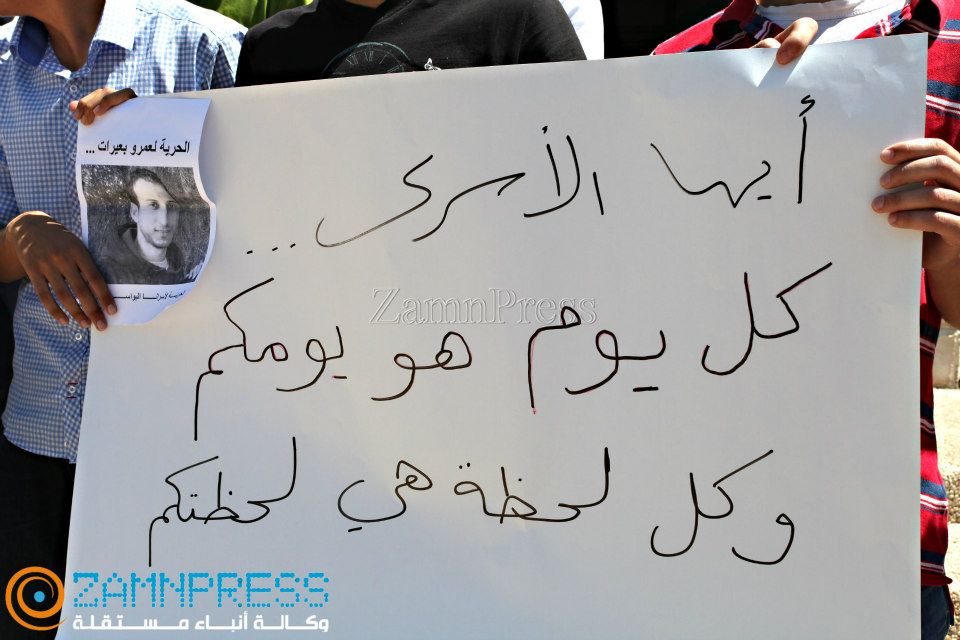 أيها الأسرى ...
كل يوم هو يومكم
وكل لحظة هي لحظتكم
الحرية لعمرو بعيرات ...
ZamnPress
ZAMNPRESS
وكالة أنباء مستقلة